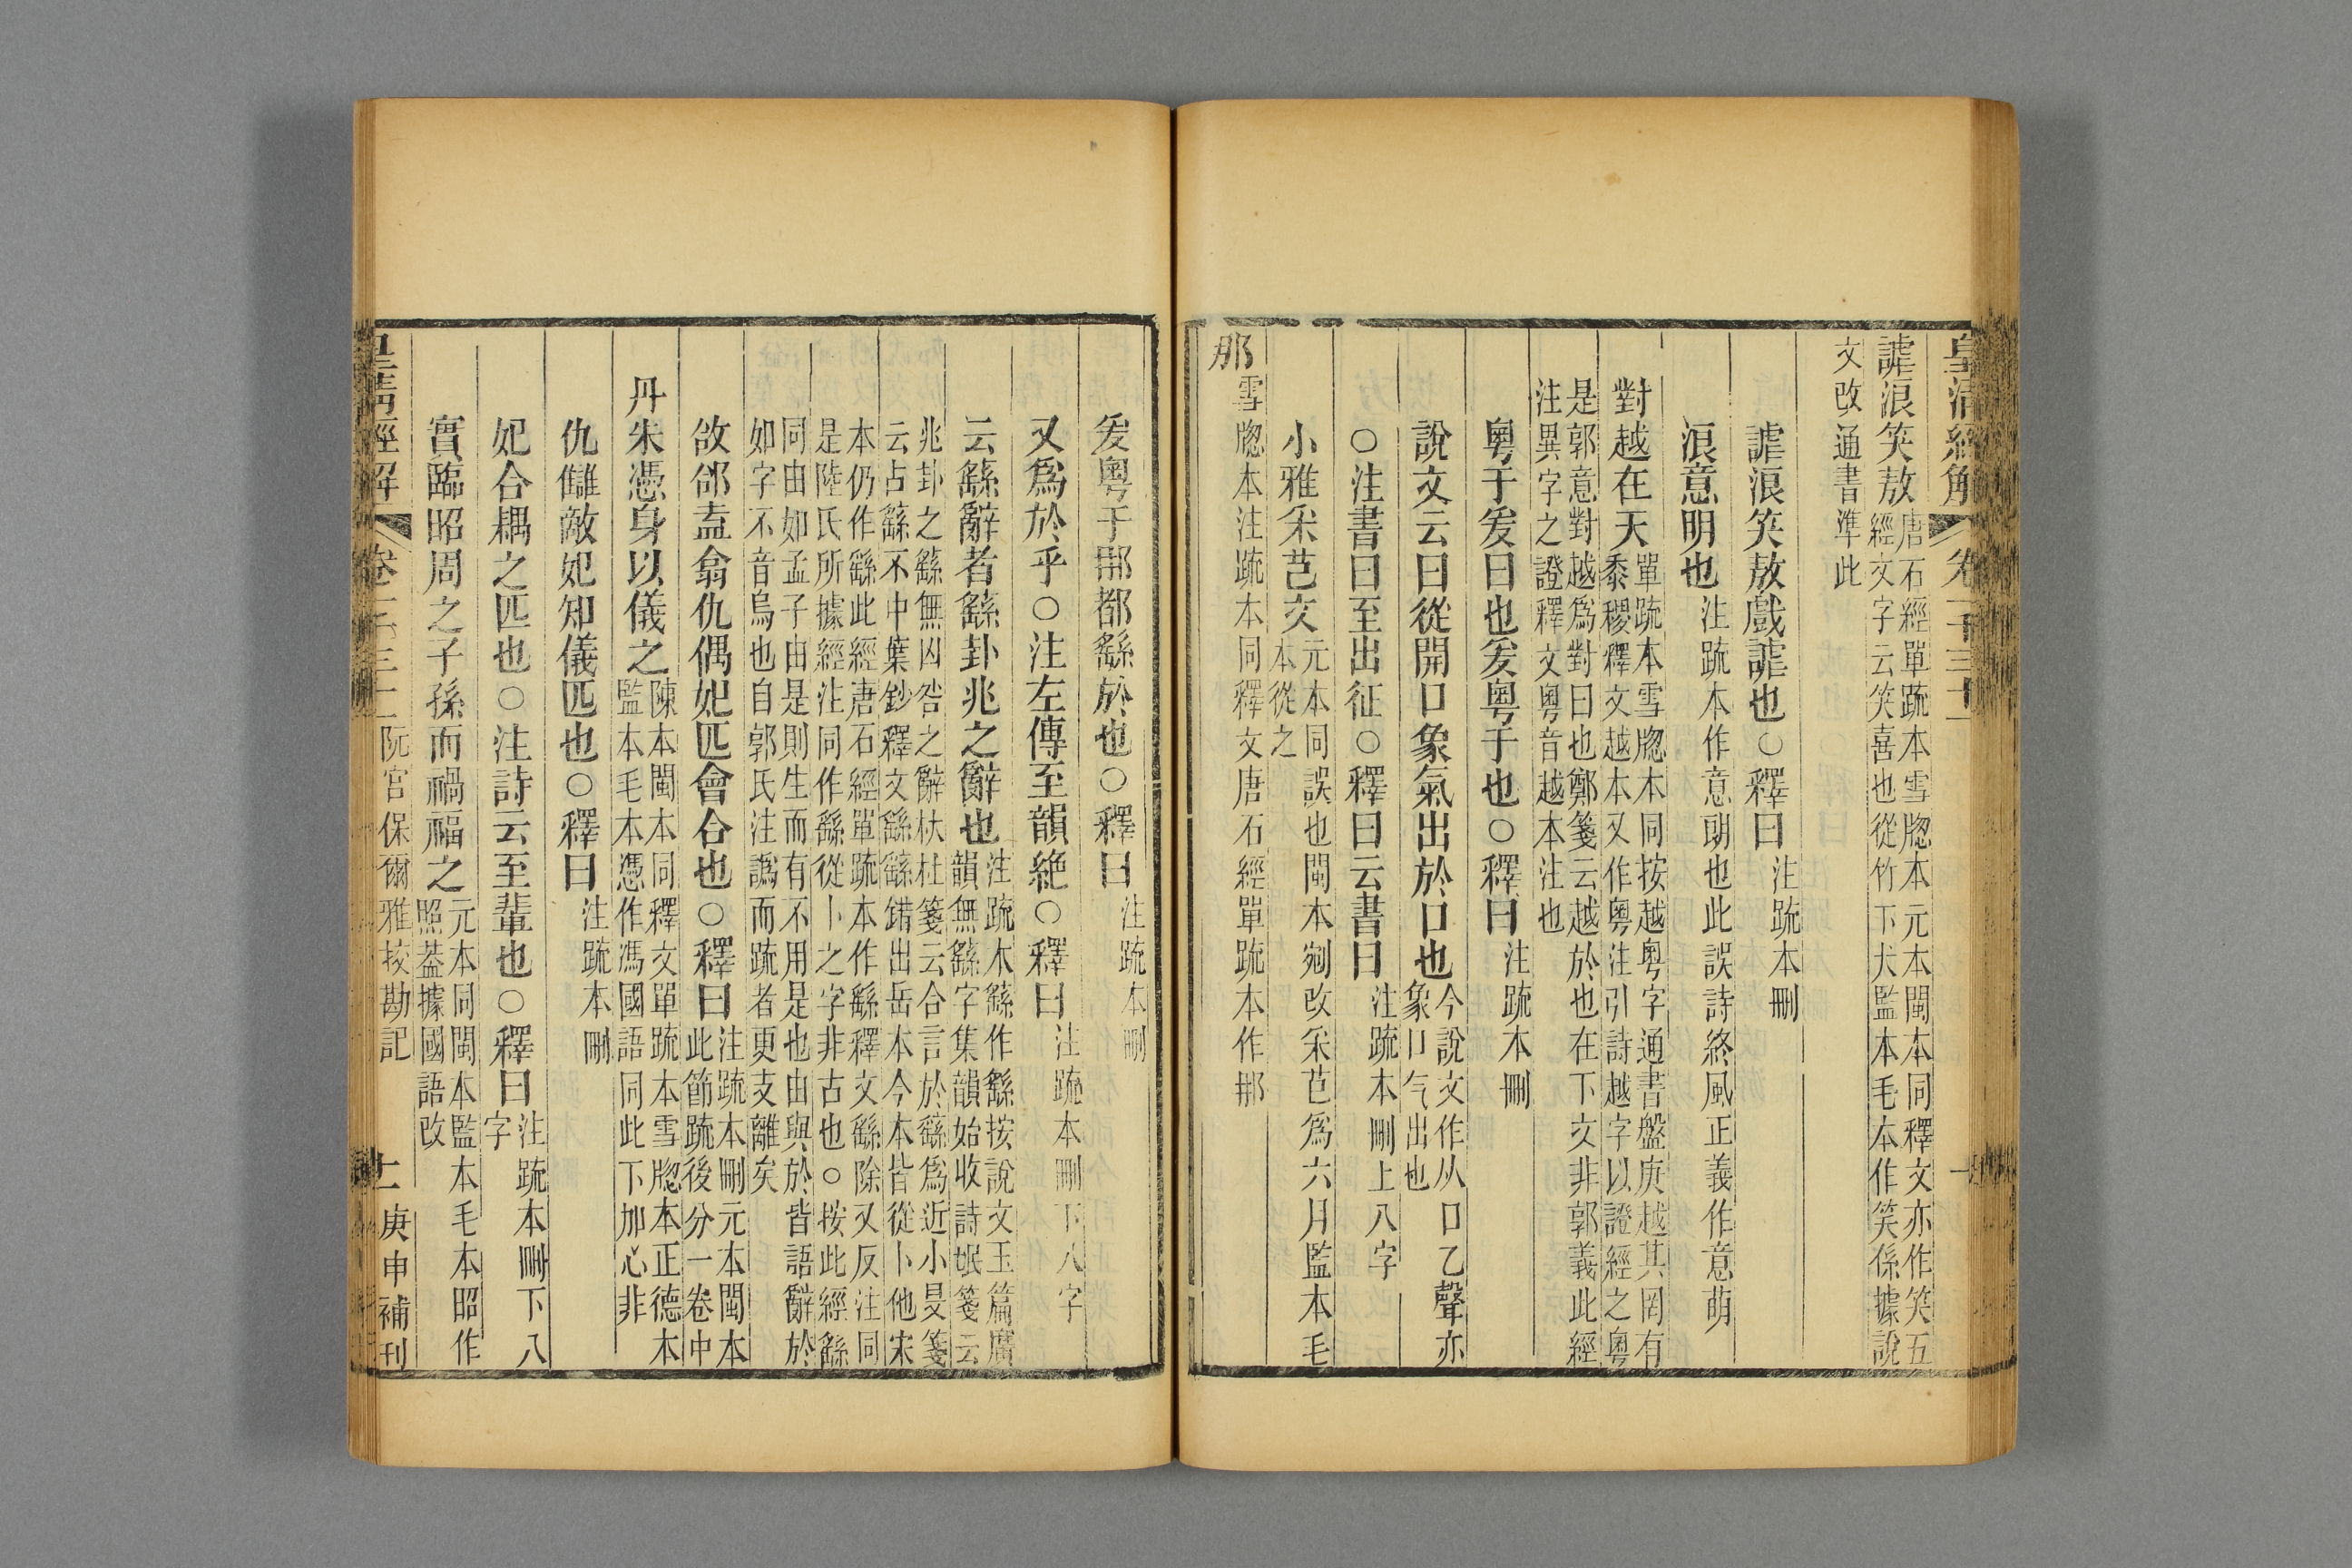 皇清經解 卷一千三十一
謔浪笑敖 唐石經單䟽本雪牎本元本閩本同釋文亦作笑五
經文字云笑喜也從竹下犬監本毛本作笑係據說
文改通書準此
謔浪笑敖戲謔也○釋曰 注䟽本刪
浪意明也 注䟽本作意朙也此誤詩終風正義作意萌
對越在天 單䟽本雪牎本同按越粵字通書盤庚越其罔有
黍稷釋文越本又作粵注引詩越字以證經之粵
是郭意對越爲對曰也鄭箋云越於也在下文非郭義此經
注異字之證釋文粵音越本注也
粵于爰曰也爰粵于也○釋曰 注䟽本刪
說文云曰從開口象氣出於口也 今說文作从口乙聲亦
象口气出也
○注書曰至出征○釋曰云書曰 注䟽本刪上八字
小雅采芑文 元本同誤也閩本剜改采芑爲六月監本毛
本從之
那 雪牎本注䟽本同釋文唐石經單䟽本作𨙻
爰粵于那都繇於也○釋曰 注䟽本刪
又爲於乎○注左傳至韻絶○釋曰 注䟽本刪下八字
云繇辭者繇卦兆之辭也 注䟽本繇作䌛按說文玉篇廣
韻無繇字集韻始收詩氓箋云
兆卦之繇無凶咎之辭杕杜箋云合言於繇爲近小旻箋
云占繇不中葉鈔釋文繇䌛錯出岳本今本皆從卜他宋
本仍作繇此經唐石經單䟽本作繇釋文繇除又反注同
是陸氏所據經注同作繇從卜之字非古也○按此經繇
同由如孟子由是則生而有不用是也由與於皆語辭於
如字不音烏也自郭氏注譌而䟽者更支離矣
故郃盍翕仇偶妃匹會合也○釋曰 注䟽本刪元本閩本
此節䟽後分一卷中
丹朱憑身以儀之 陳本閩本同釋文單䟽本雪牎本正德本
監本毛本憑作馮國語同此下加心非
仇讎敵妃知儀匹也○釋曰 注䟽本刪
妃合耦之匹也○注詩云至輩也○釋曰 注䟽本刪下八
字
實臨昭周之子孫而禍福之 元本同閩本監本毛本昭作
照葢據國語改
皇清經解 卷一千三十一 阮宮保爾雅挍勘記 十一 庚申補刊